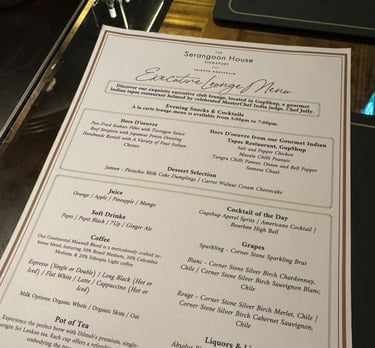 THE
Serangoon House
SINGAPORE
TRIBUTE PORTFOLIO
Executive Lounge Menu
Discover our exquisite executive club lounge, located in GupShup, a gourmet
Indian tapas restaurant helmed by celebrated MasterChef India judge, Chef Jolly.
Evening Snacks & Cocktails
À la carte lounge menu is available from 5:00pm to 7:00pm.
Hors D'oeuvre
Pan-Fried Salmon Fillet with Tarragon Sauce
Beef Striploin with Japanese Ponzu Dressing
Handmade Ravioli with A Variety of Four Italian
Cheeses
Hors D'oeuvre from our Gourmet Indian
Tapas Restaurant, GupShup
Salt and Pepper Chicken
Masala Chilli Peanuts
Tangra Chilli Paneer, Onion and Bell Pepper
Samosa Chaat
Dessert Selection
Jamun - Pistachio Milk Cake Dumplings / Carrot Walnut Cream Cheesecake
Juice
Orange / Apple / Pineapple / Mango
Soft Drinks
Pepsi / Pepsi Black / 7Up / Ginger Ale
Coffee
Our Continental Maxwell Blend is a meticulously crafted in-
house blend, featuring 50% Brazil Medium, 30% Colombia
Medium, & 20% Ethiopia Light coffee.
Espresso (Single or Double) / Long Black (Hot or
Iced) / Flat White / Latte / Cappuccino (Hot or
Iced)
Milk Options: Organic Whole / Organic Skim / Oat
Pot of Tea
Experience the perfect brew with Dilmah's premium, single-
origin Sri Lankan tea. Each cup offers a refreshing
embodying the
Cocktail of the Day
Gupshup Aperol Spritz / Americano Cocktail /
Bourbon High Ball
Grapes
Sparkling - Corner Stone Sparkling Brut
Blanc - Corner Stone Silver Birch Chardonnay,
Chile / Corner Stone Silver Birch Sauvignon Blanc,
Chile
Rouge - Corner Stone Silver Birch Merlot, Chile /
Corner Stone Silver Birch Cabernet Sauvignon,
Chile
Liquors &
Absolut